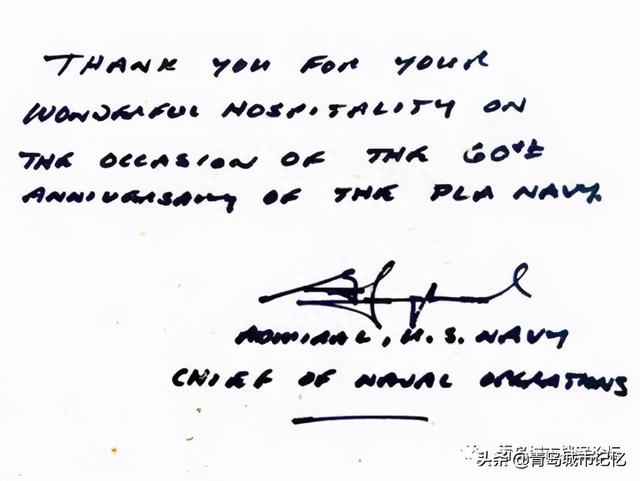 THANK YOU FOR YOUR
WONDERFUL HOSPITALITY ON
THE OCCASION OF THE 60th
ANNIVERSARY OF THE PLA NAVY.
ADMIRAL, U.S. NAVY
CHIEF OF NAVAL OPERATIONS
头条@青岛城市记忆